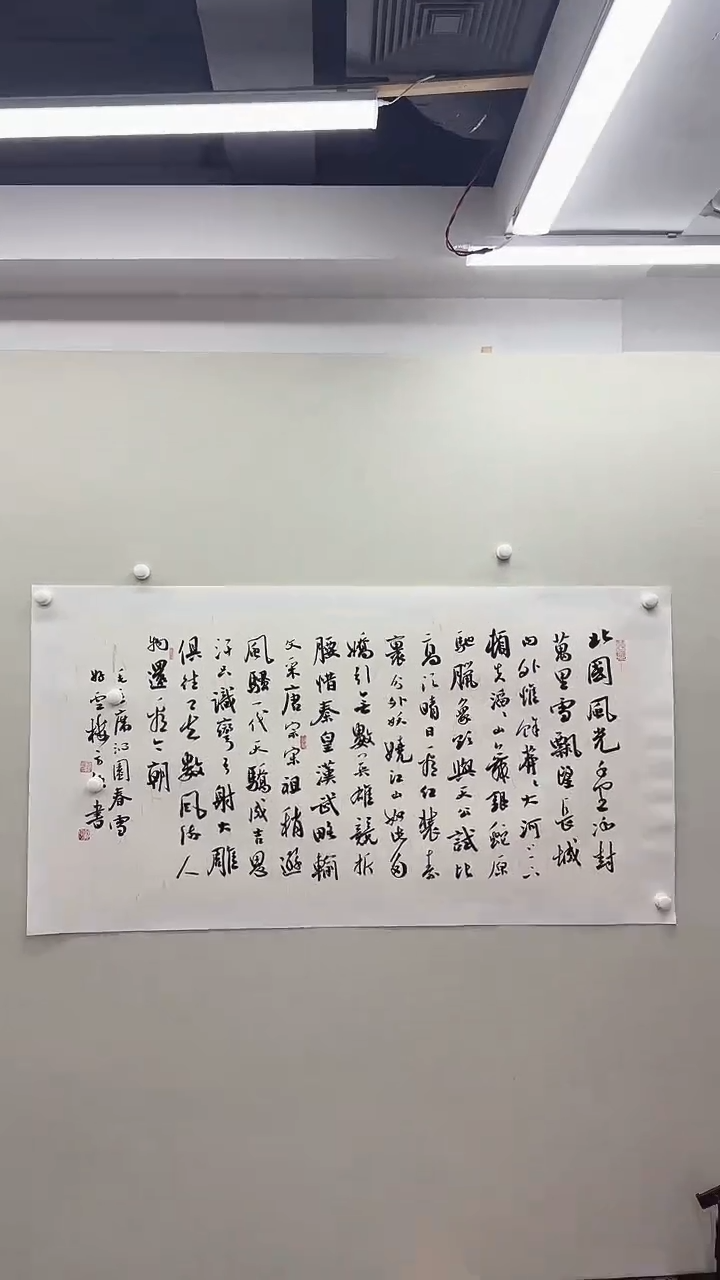 北國風光千里冰封
萬里雪飄望長城
内外惟餘莽々大河上下
頓失滔々山舞銀蛇原
馳臘象欲與天公試比
高須晴日看紅裝素
裹分外妖嬈江山如此多
嬌引無數英雄競折
腰惜秦皇漢武略輸
文采唐宗宋祖稍遜
風騷一代天驕成吉思
汗只識彎弓射大雕
俱往矣數風流人
物還看今朝
毛主席沁園春雪
書